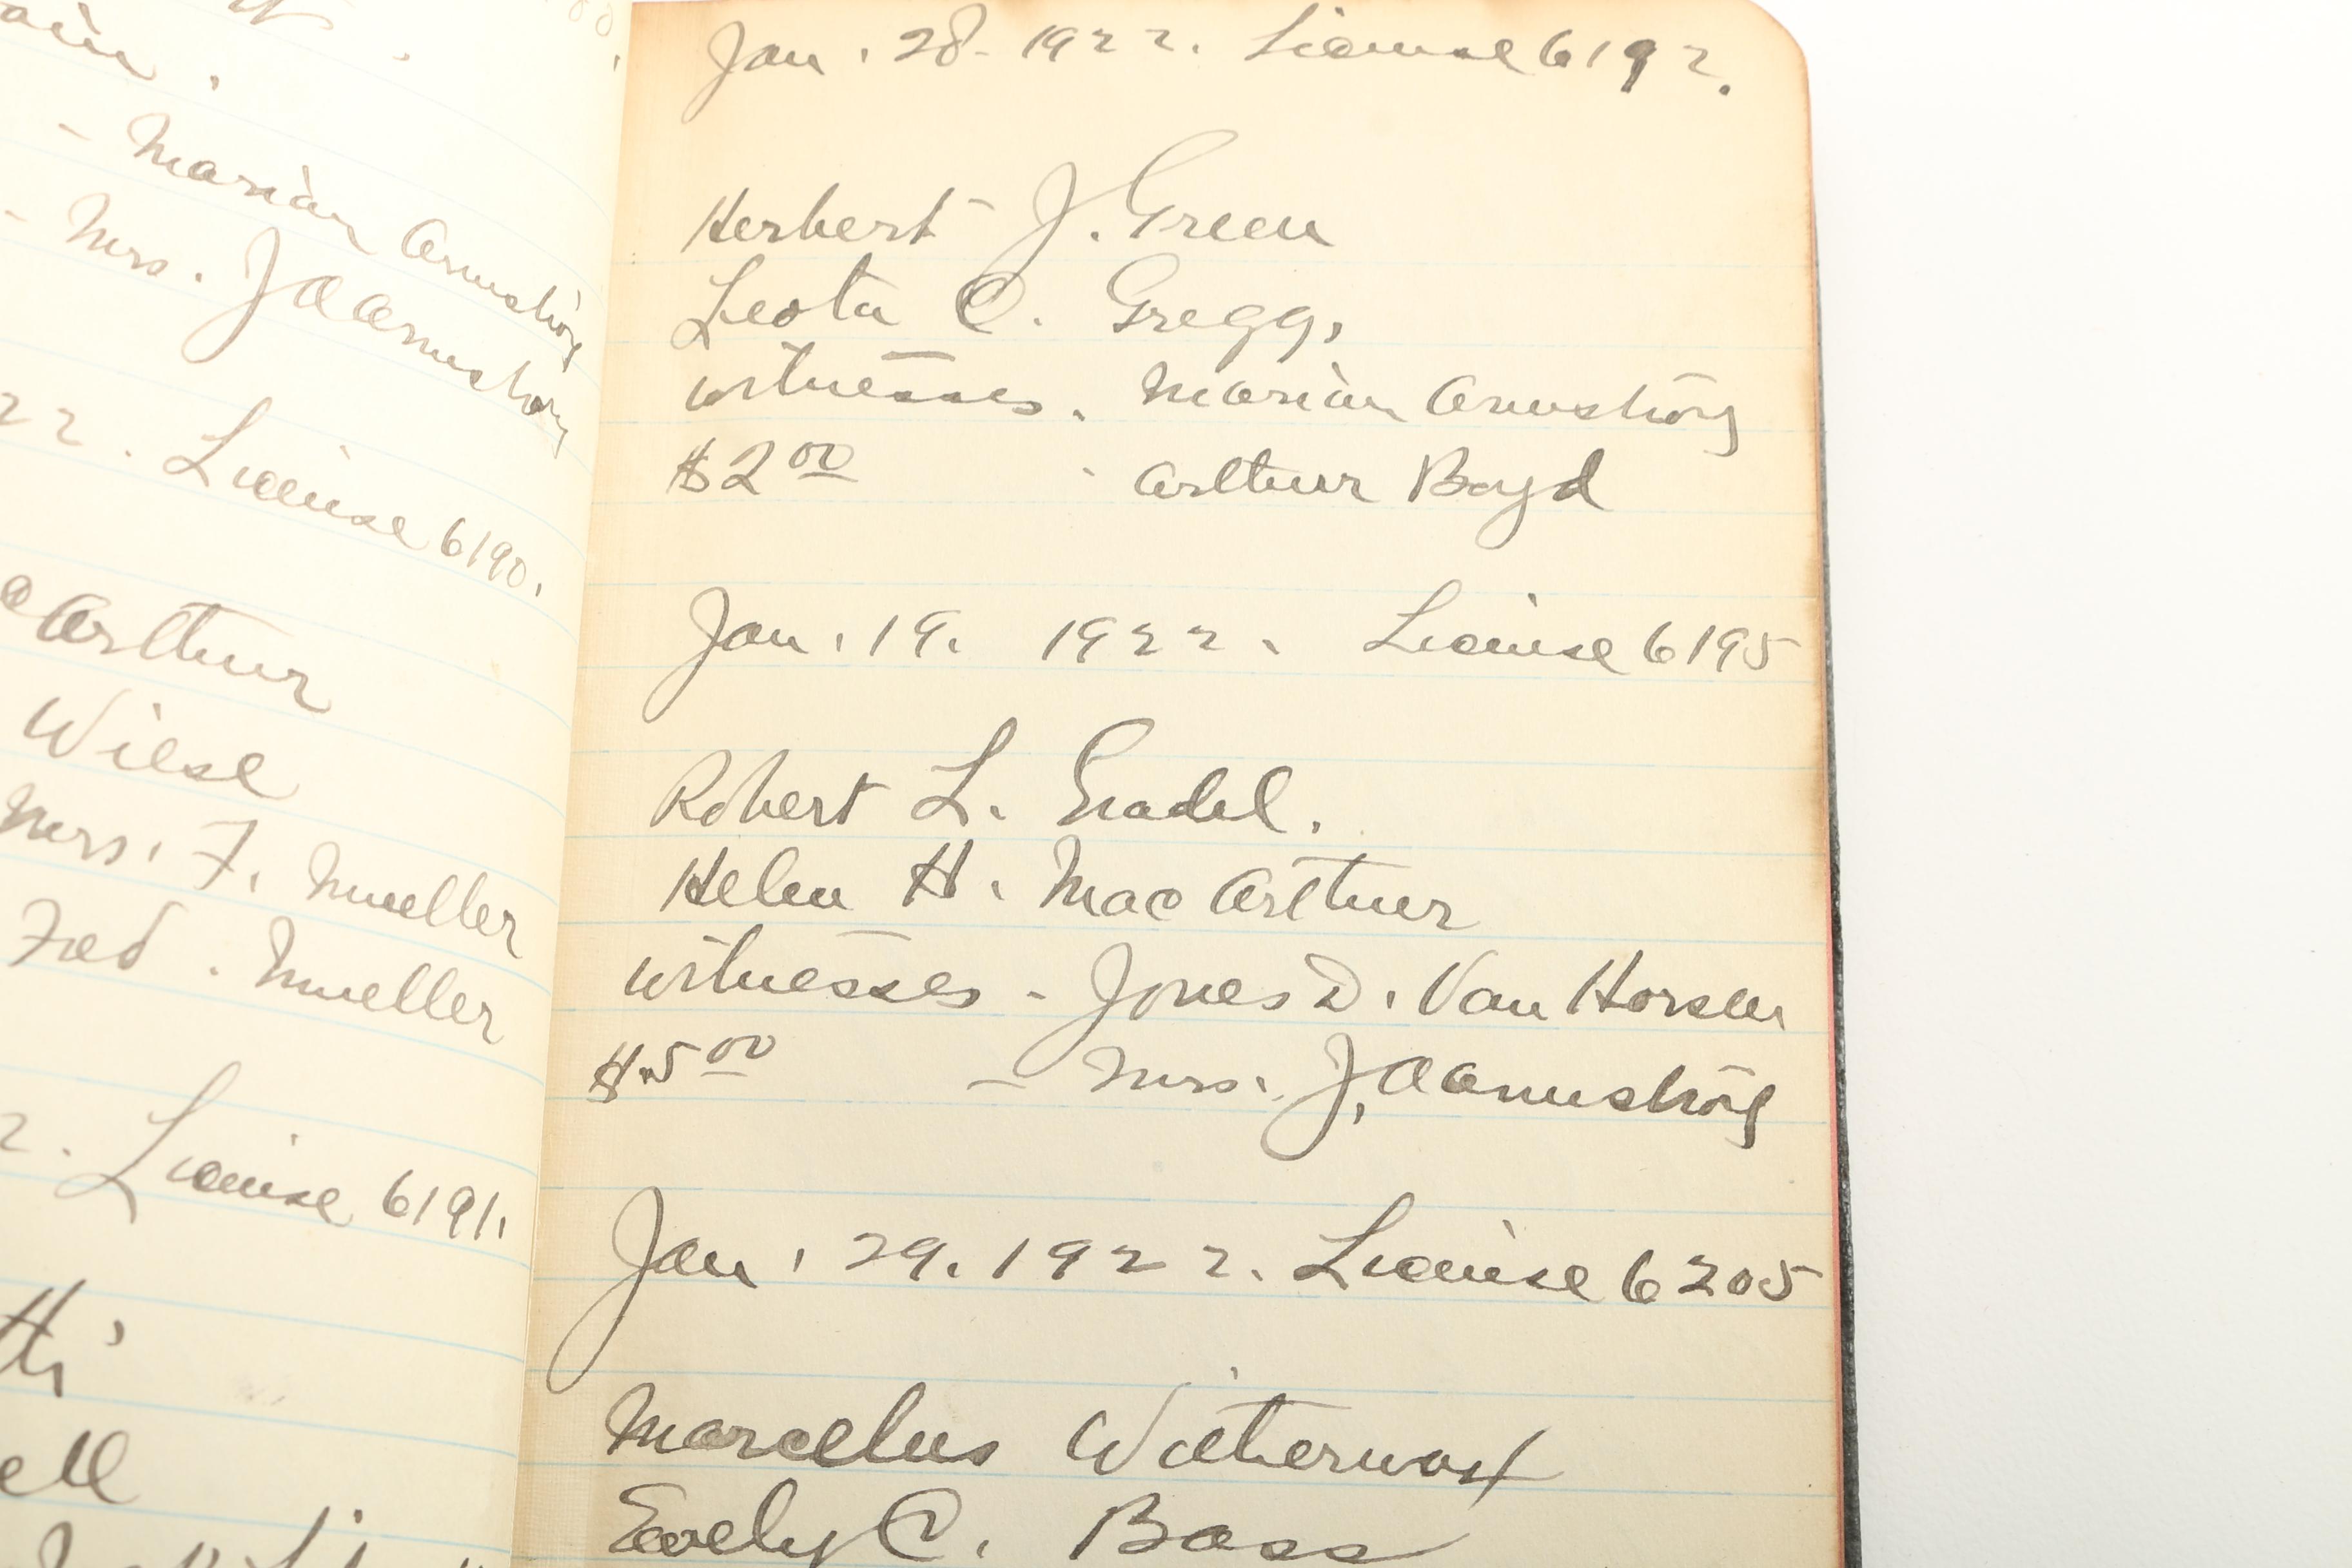 - Marian Armstrong
- Mrs. J A Armstrong
22. License 6190.
Arthur
Wiese
Mrs. F. Mueller
Fred. Mueller
2. License 6191.
Jan. 28. 1922. License 6192.
Herbert J. Green
Leota C. Gregg.
witnesses. Marian Armstrong
$2 00 - Arthur Boyd
Jan. 19. 1922. License 6195
Robert L.
Helen H. Mac Arthur
witnesses - Jones D. Van Horsen
$.5 00 - Mrs. J. A Armstrong
Jan. 29. 1922. License 6205
Marcelus
Evelyn C. Bass